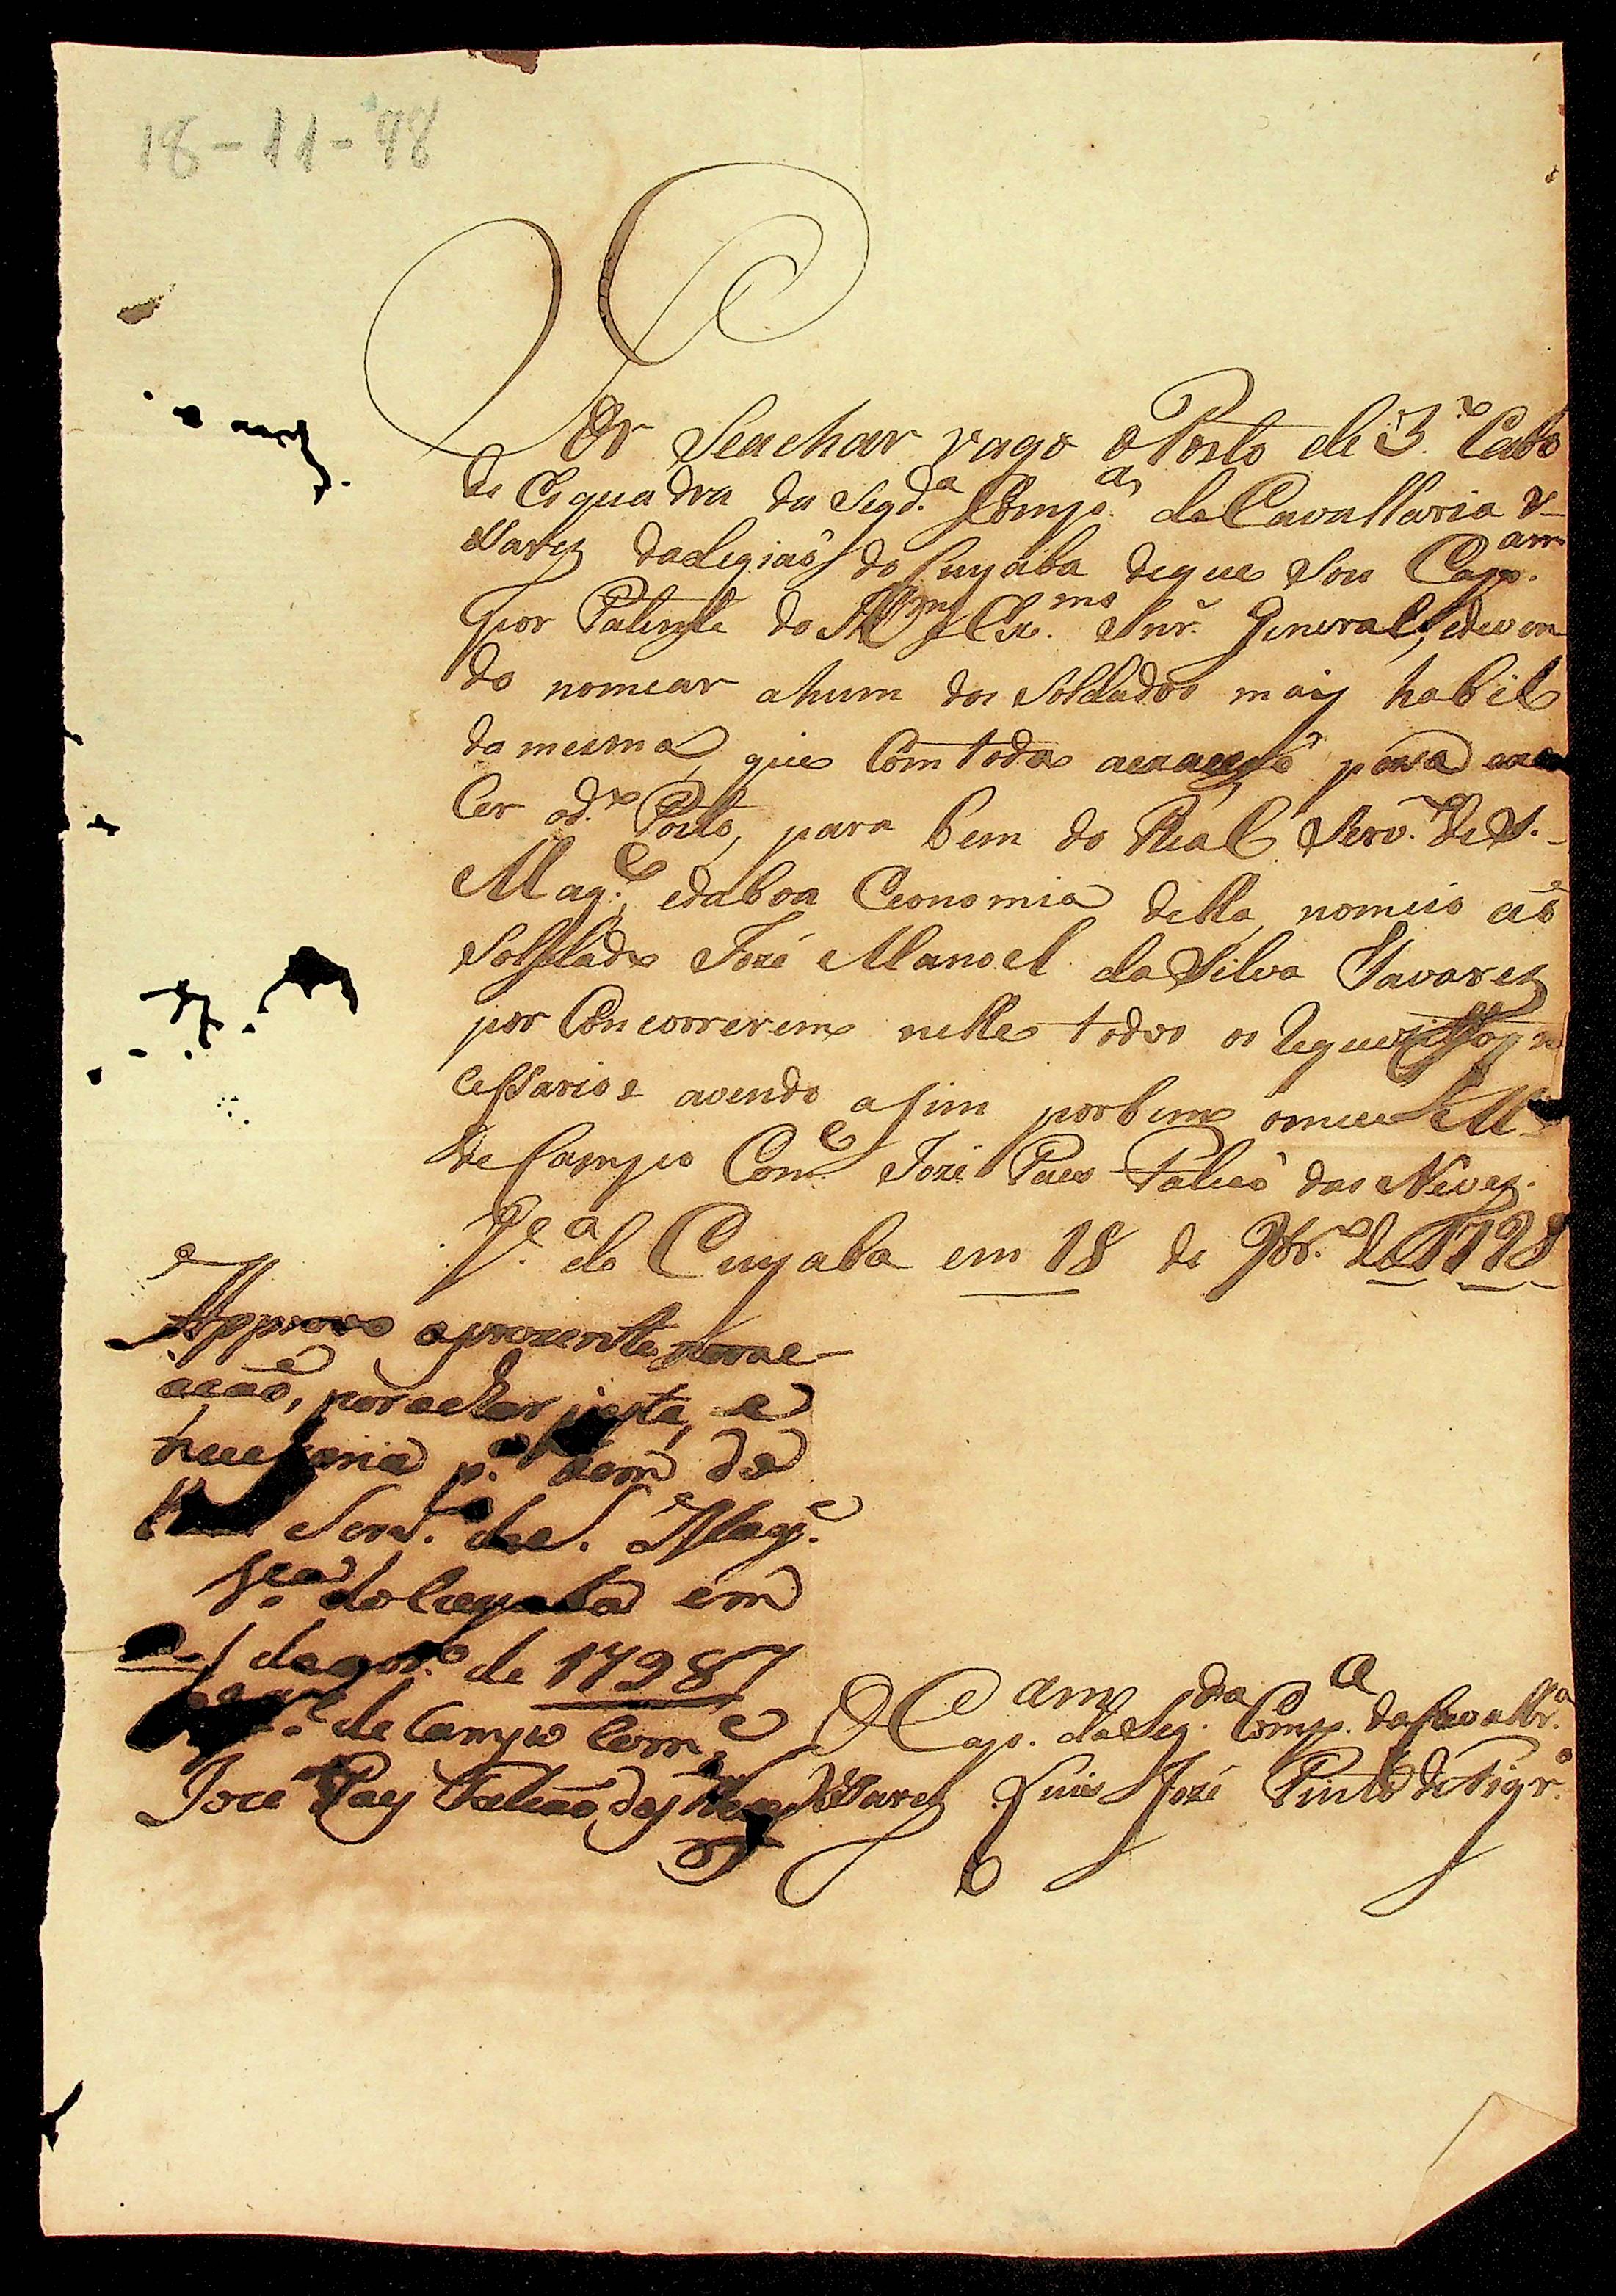 18-11-98
Por Seachar vago o Posto de 3.º Cabo
de Esquadra da Segd.ª Comp.ª de Cavallaria D-
Darez daLegiaõ do Cuyaba deque Sou Cap.am
por Patente do Ill.mo Ex.mo Snr. General, deven
do nomear ahum dos Soldados mais habil
da mesma, que Com toda aexacçaõ posa exer
cer od.º Posto, para bem do Real Serv.º de S.
Mag.e, edaboa Economia della, nomeio aõ
Soldado José Manoel da Silva Tavares
por Concorrerem nelle todos os Requezittos ne
cessarios avendo asim porbem omeu M.e
de Campo Com.e José Paes Falcaõ das Neves.
V.ª do Cuyaba em 18 de 9br.º de 1798
Approvo aprezente nome-
açaõ, por achar justa, e
necessaria p.ª bem do
Real Serv.º de S. Mag.e
V.ª do Cuyaba em
de 9br.º de 1798
de Campo Com.e
José Paes Falcaõ das Neves
O Cap.am da Seg.da Comp.ª da Cavallr.ª
DDarez Luis José Pinto de Figr.º